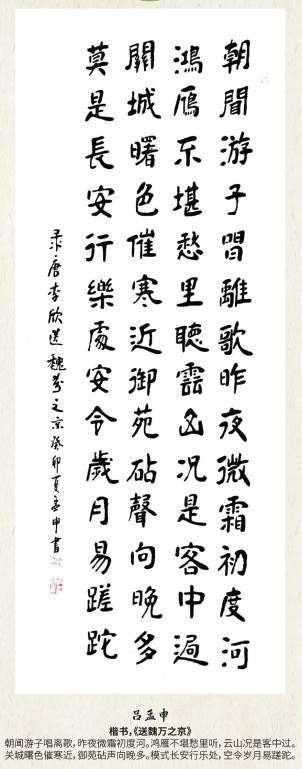 朝聞游子唱離歌昨夜微霜初度河
鴻鴈不堪愁里聽雲山况是客中過
關城曙色催寒近御苑砧聲向晚多
莫是長安行樂處空令歲月易蹉跎
录唐李欣送魏萬之京癸卯夏孟申書
吕孟申
楷书,《送魏万之京》
朝闻游子唱离歌，昨夜微霜初度河。鸿雁不堪愁里听，云山况是客中过。
关城曙色催寒近，御苑砧声向晚多。模式长安行乐处，空令岁月易蹉跎。